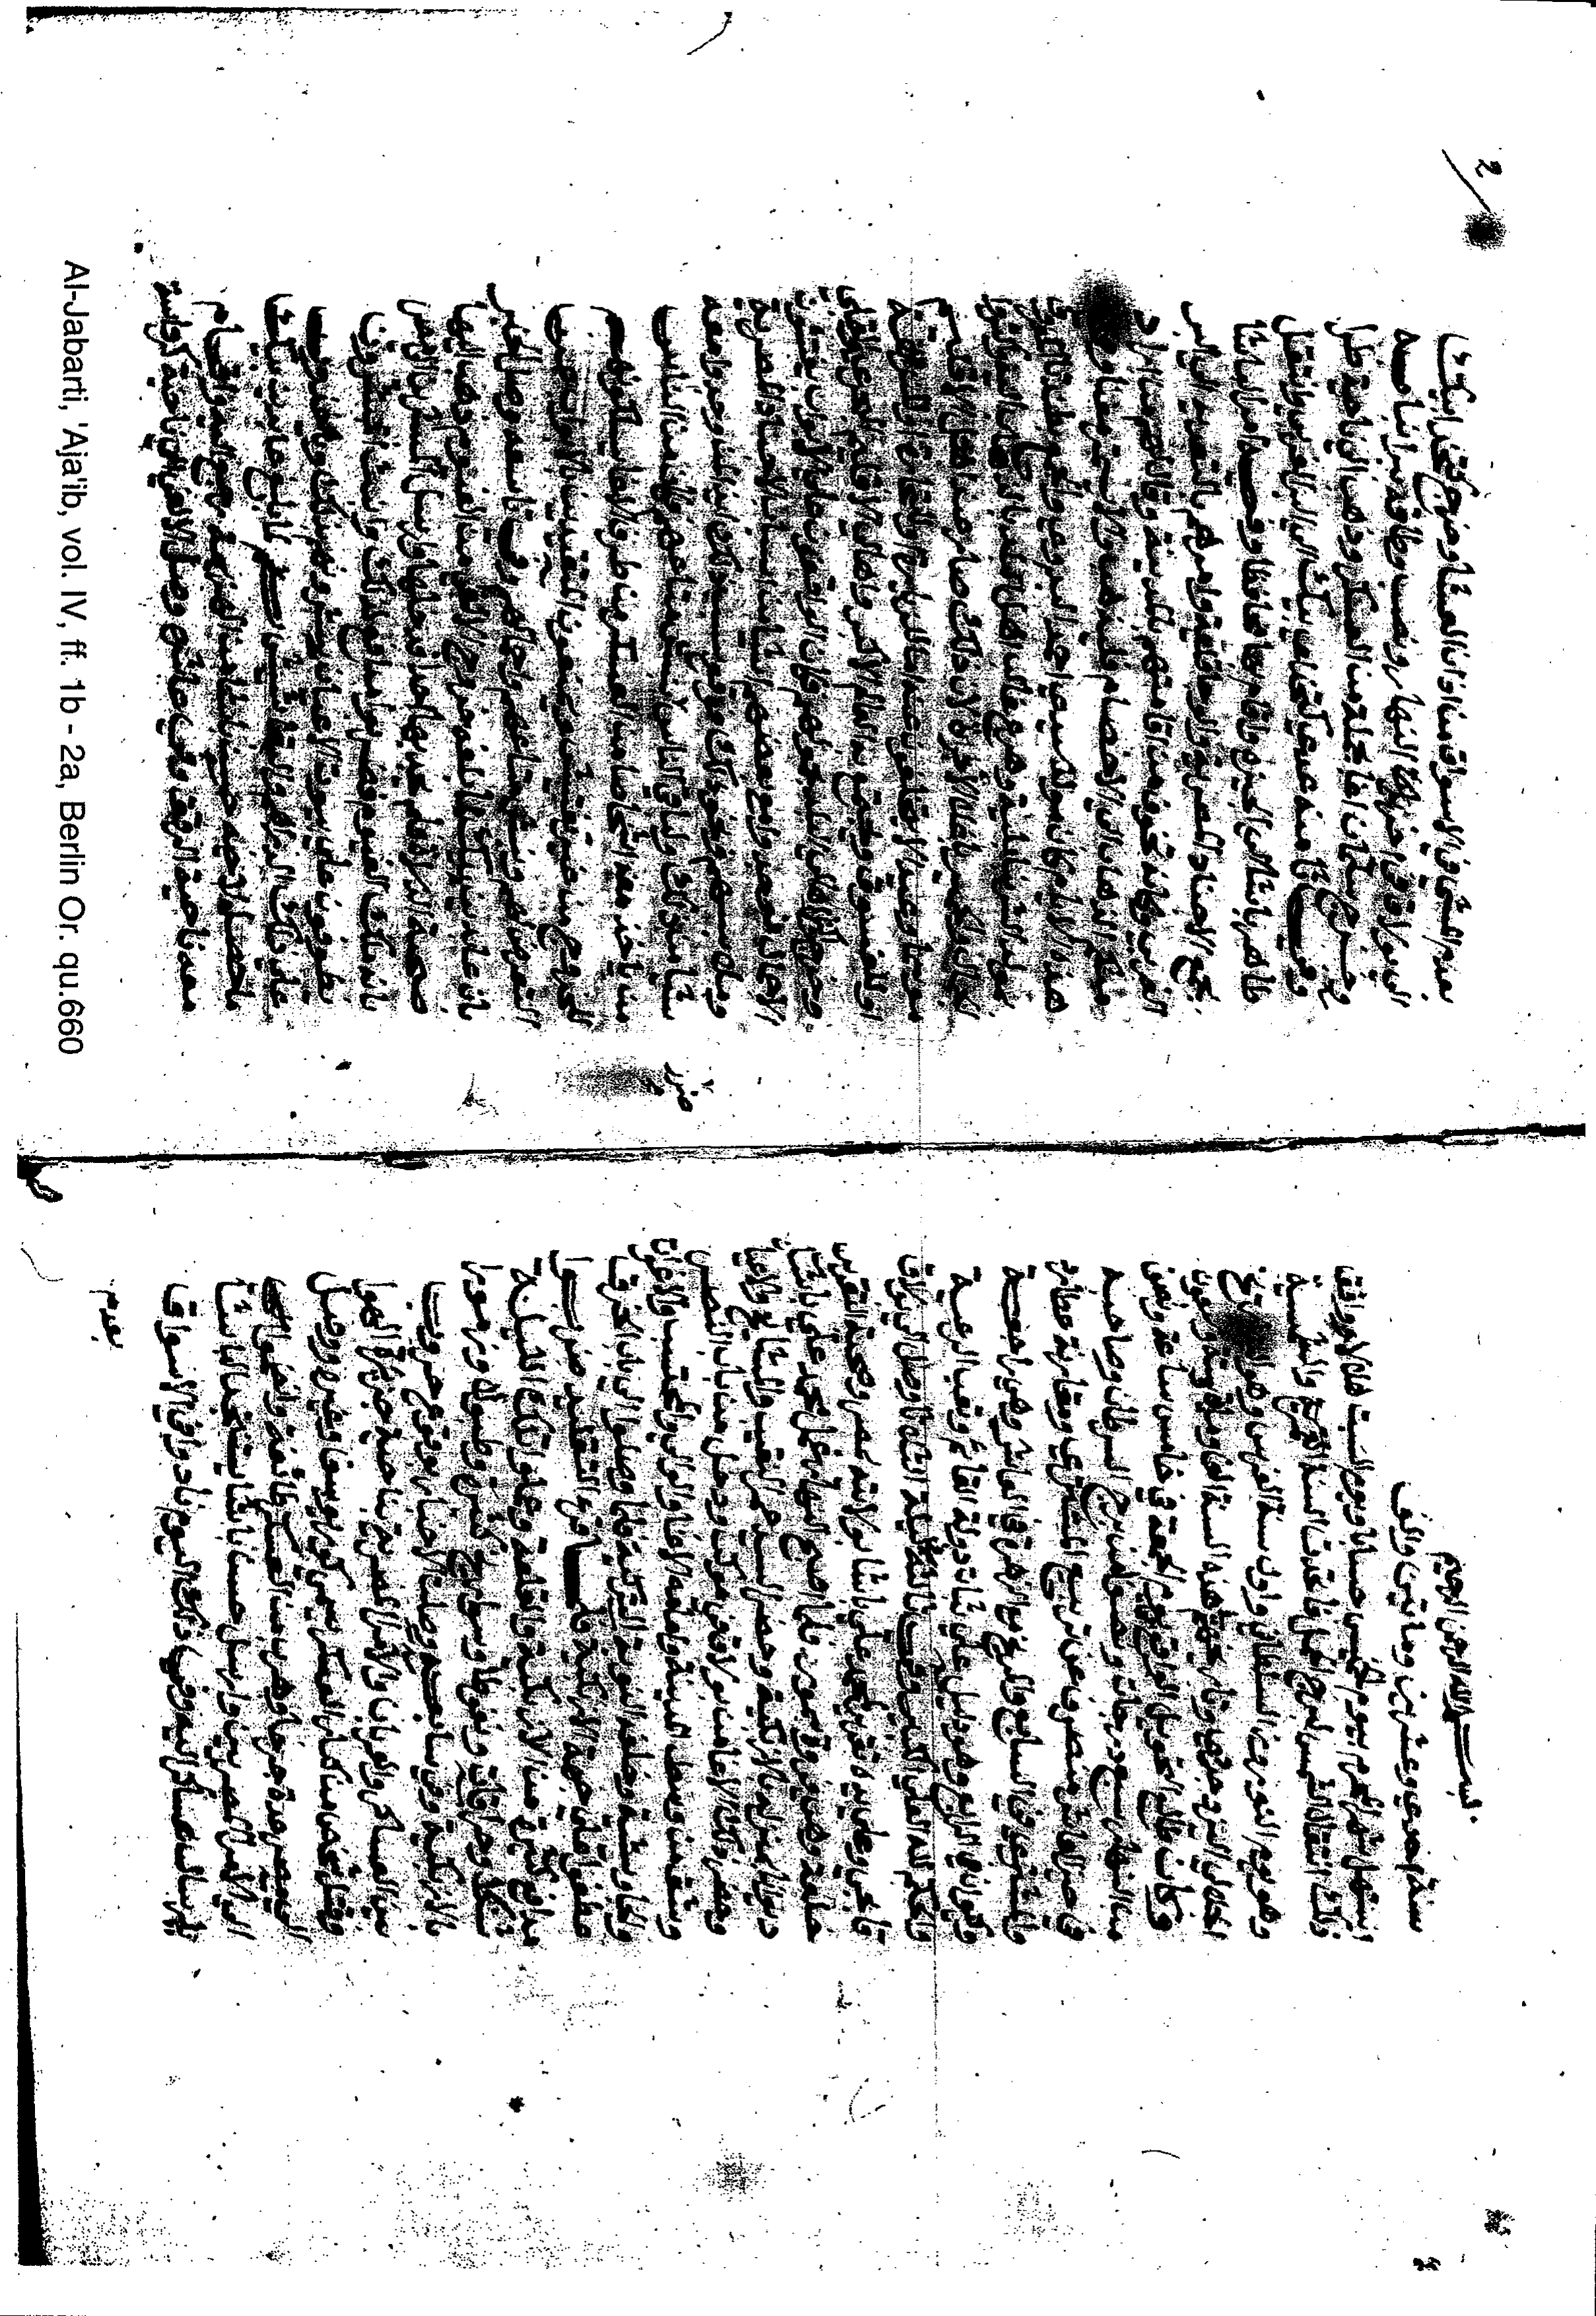 بسم الله الرحمن الرحيم
سنة احدي وعشرين وماتين والف
استهل شهر المحرم بيوم الخميس حسابا وبيوم السبت هلالا ووافق
ذلك انتقال الشمس لبرج الحمل فاتحدت السنة القمرية والشمسية
وهو يوم النوروز السلطاني واول سنة الفرس وهي التاريخ
الجلالي اليزدجردي وتاريخها هذه السنة الف وماية وستة وسبعون
وكان طالع التحويل الواقع في يوم الجمعة في خامس ساعة وتعين
من النهار سبع درجات ونصف من برج السرطان وصاحبه
في حيز العاشر منصرف عن تربيع المشتري ومقارنة عطارد
والمشتري في السابع والمريخ مع الزهرة في العاشر وهي راجعة
وكيوان في الرابع وهو دليل علي ثبات دولة القائم وتعب الرعية
والحكم لله العلي الكبير وفي ثالثه ليلة الثلاثا وصل الي بولاق
قابجي وعلي يده تقرير لمحمد علي باشا بولاية مصر وصحبة التقرير
خلعة وهي فروة سمور فلما اصبح النهار عمل محمد علي باشا
ديوانا بمنزله بالازبكية وحضر السيد عمر النقيب والمشايخ والاعيان
وحضر ذلك الاغا من بولاق في موكب ودخل من باب النصر
وشق من وسط المدينة وامامه الاغا والوالي والمحتسب والاغوات
والجاويشية وخلفه النوبة التركية فلما وصلوا الي باب الخرق
عطفوا علي جهة الازبكية فلما قري التقليد ضربوا
مدافع كثيرة من الازبكية والقلعة وعملوا تلك الليلة
شنكا وحراقات ونفوطا وسواريخ كثيرة وطبولا وزمورا
بالازبكية وفي سابعه وصلت الاخبار بوقوع حروب
بين العساكر والعربان والامرا المصرية بناحية جزيرة الهوا
وقتل شخص من كبار العسكر يسمي كور يوسف وغيره ووصل
الي مصر عدة جرحا وهرب من العسكر طائفة وانضموا
الي الامرا المصريين وارسل حسن باشا يستنجد الباشا
بارسال عساكر اليه وفي ذلك اليوم نادوا في الاسواق
بعدم
2
بعدم المشي في الاسواق من اذان العشا وخرج كتخدا بيك
الي بولاق في اخريات النهار ونصب وطاقه ببر انبابه
وخرج سليمان اغا بجملة من العسكر وذهب الي ناحية طرا
عدي كتخدا بيك الي البر الغربي وانتقل
طاهر باشا الي الجيزة واقام بها محافظا وفيه امر الباشا
بجمع الاجناد المصرية والوجاقلية وامرهم بالتعدية الي البر
الغربي وكان تخوف من اقامتهم بالمدينة وقال لهم من اراد
منكم الذهاب الي اخصامه فليذهب والا يستمر معنا وفي
هذه الايام كان مولد سيدي احمد البدوي والجمع بطندتا المعروف
بمولد الشرنبلالية وهرع غالب اهل البلد بالذهاب اليه واكتروا
الجمال والحمير باغلا الاجرة لان ذلك صار عند اهل الاقليم
موسما وعيدا لا يتخلفون عنه اما للزيارة او للتجارة او للنزاهة
او للفسوق ويجتمع به العالم الاكبر واهالي الاقليم البحري والقبلي
وخرج اكثر اهالي البلدة بحمولهم فكان الواقفون علي الابواب يفتشون
الاحمال فوجدوا مع بعضهم اشيا من اسباب الاجناد المصرية
وملابسهم ونحو ذلك فوقع بسبب ذلك ايذا لمن وجدوا معه
شيا من ذلك ولباقي الناس بنبش متاعهم وكان من الناس
من ياخذ معه اشخاصا من العسكر من طرف الاغا يسلكونهم
للخروج من غير تفتيش يمنعون المتقيدين بالابواب عن
التعرض لهم ونبش متاعهم واحمالهم وفي تاسعه وصل الخبر
بان عابدين بيك لما بلغه خروج الالفي من الفيوم ذهب اليها
صحبة الدلاة فلم يجد بها احدا فدخلها وارسل المبشرين الي مصر
بانه ملك الفيوم فضربوا مدافع لذلك وانبث المبشرون
يطوفون علي بيوت الاعيان يبشرونهم بذلك وياخذون
علي ذلك الدراهم والبقاشيش ثم لما بلغ عابدين بيك
ما حصل لاخيه حسن باشا من الهزيمة رجع اليه واقام
معه بناحية الرقق وفي عاشره وصل الالفي الي ناحية كرداسة
ضرر
Al-Jabarti, 'Aja'ib, vol. IV, ff. 1b - 2a, Berlin Or. qu.660